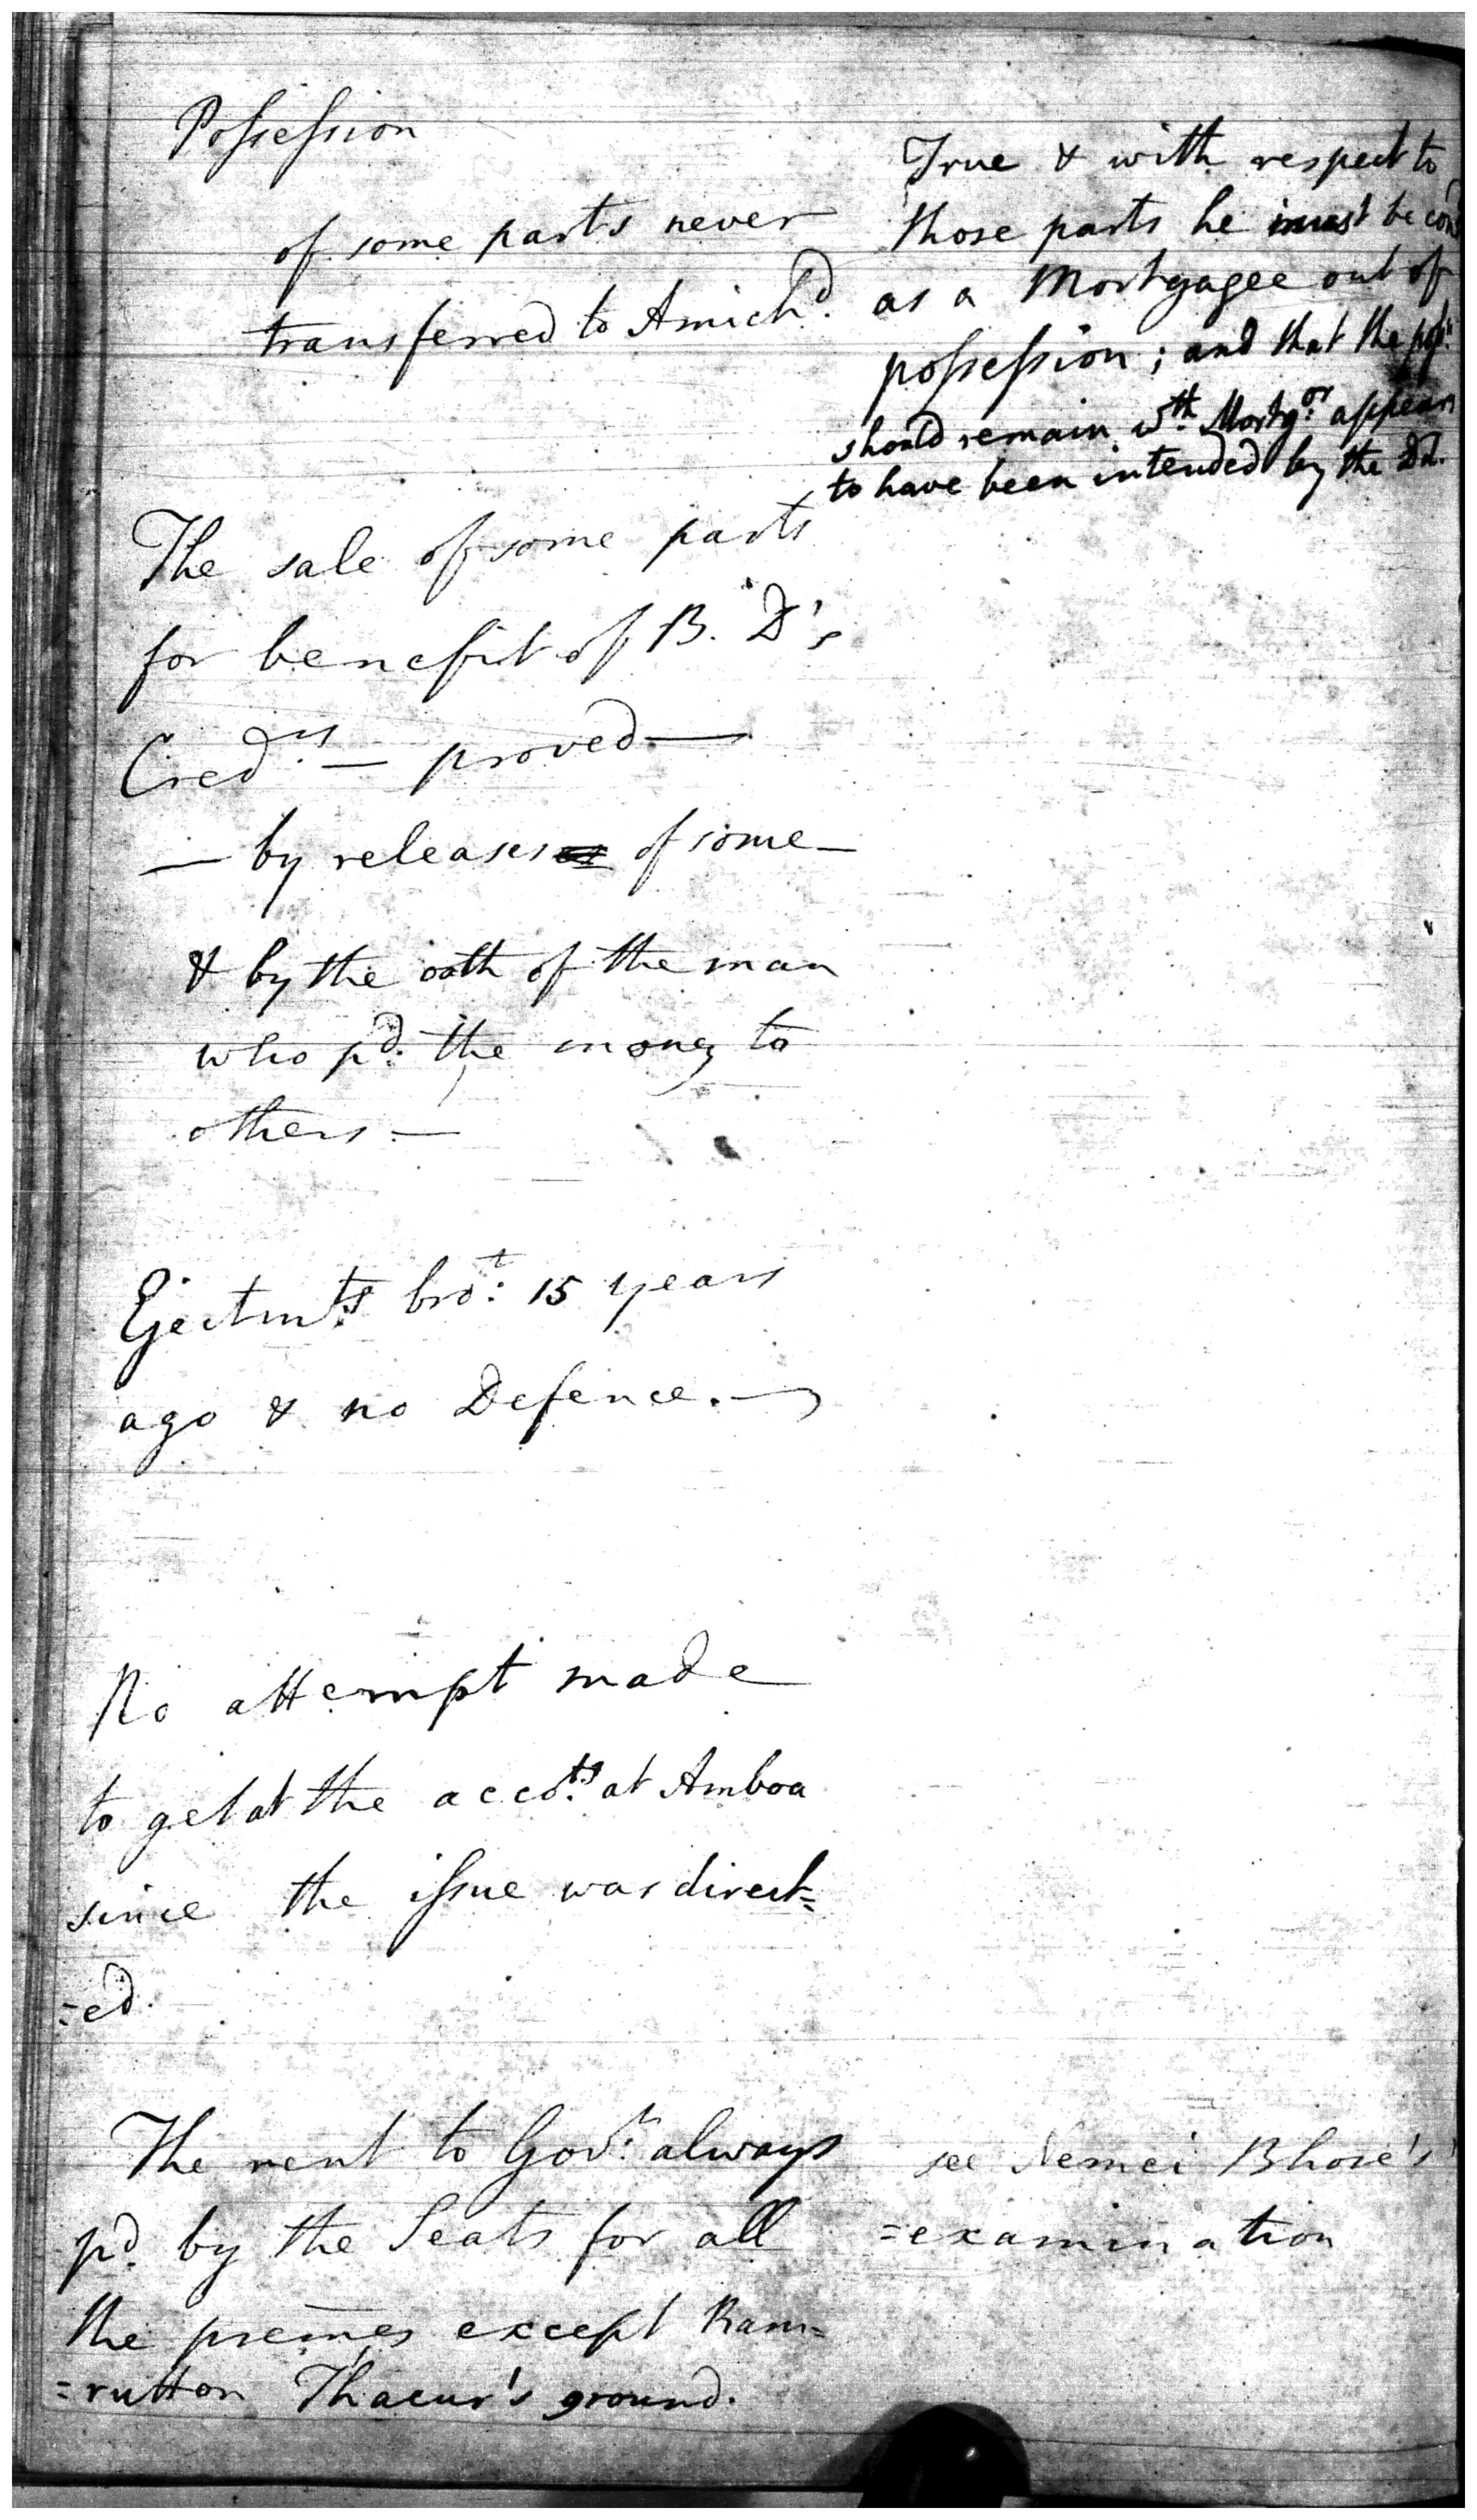 Possession
of some parts never
transferred to Amichd.
True & with respect to
those parts he must be
as a Mortgagee out of
possession; and that the
should remain wth. Mortgor. appears
to have been intended by the Dd.
The sale of some parts
for benefit of B. D's
Credrs. — proved —
— by releases of some —
& by the oath of the man
who pd. the money to
others —
Ejectmts. brot: 15 years
ago & no Defence. —
No attempt made
to get at the accots. at Amboa
since the issue was direct=
=ed.
The rent to Govt: always
pd. by the Seats for all
the premes except Ram=
=rutton Thacur's ground.
see Nemei Bhose's
=examination